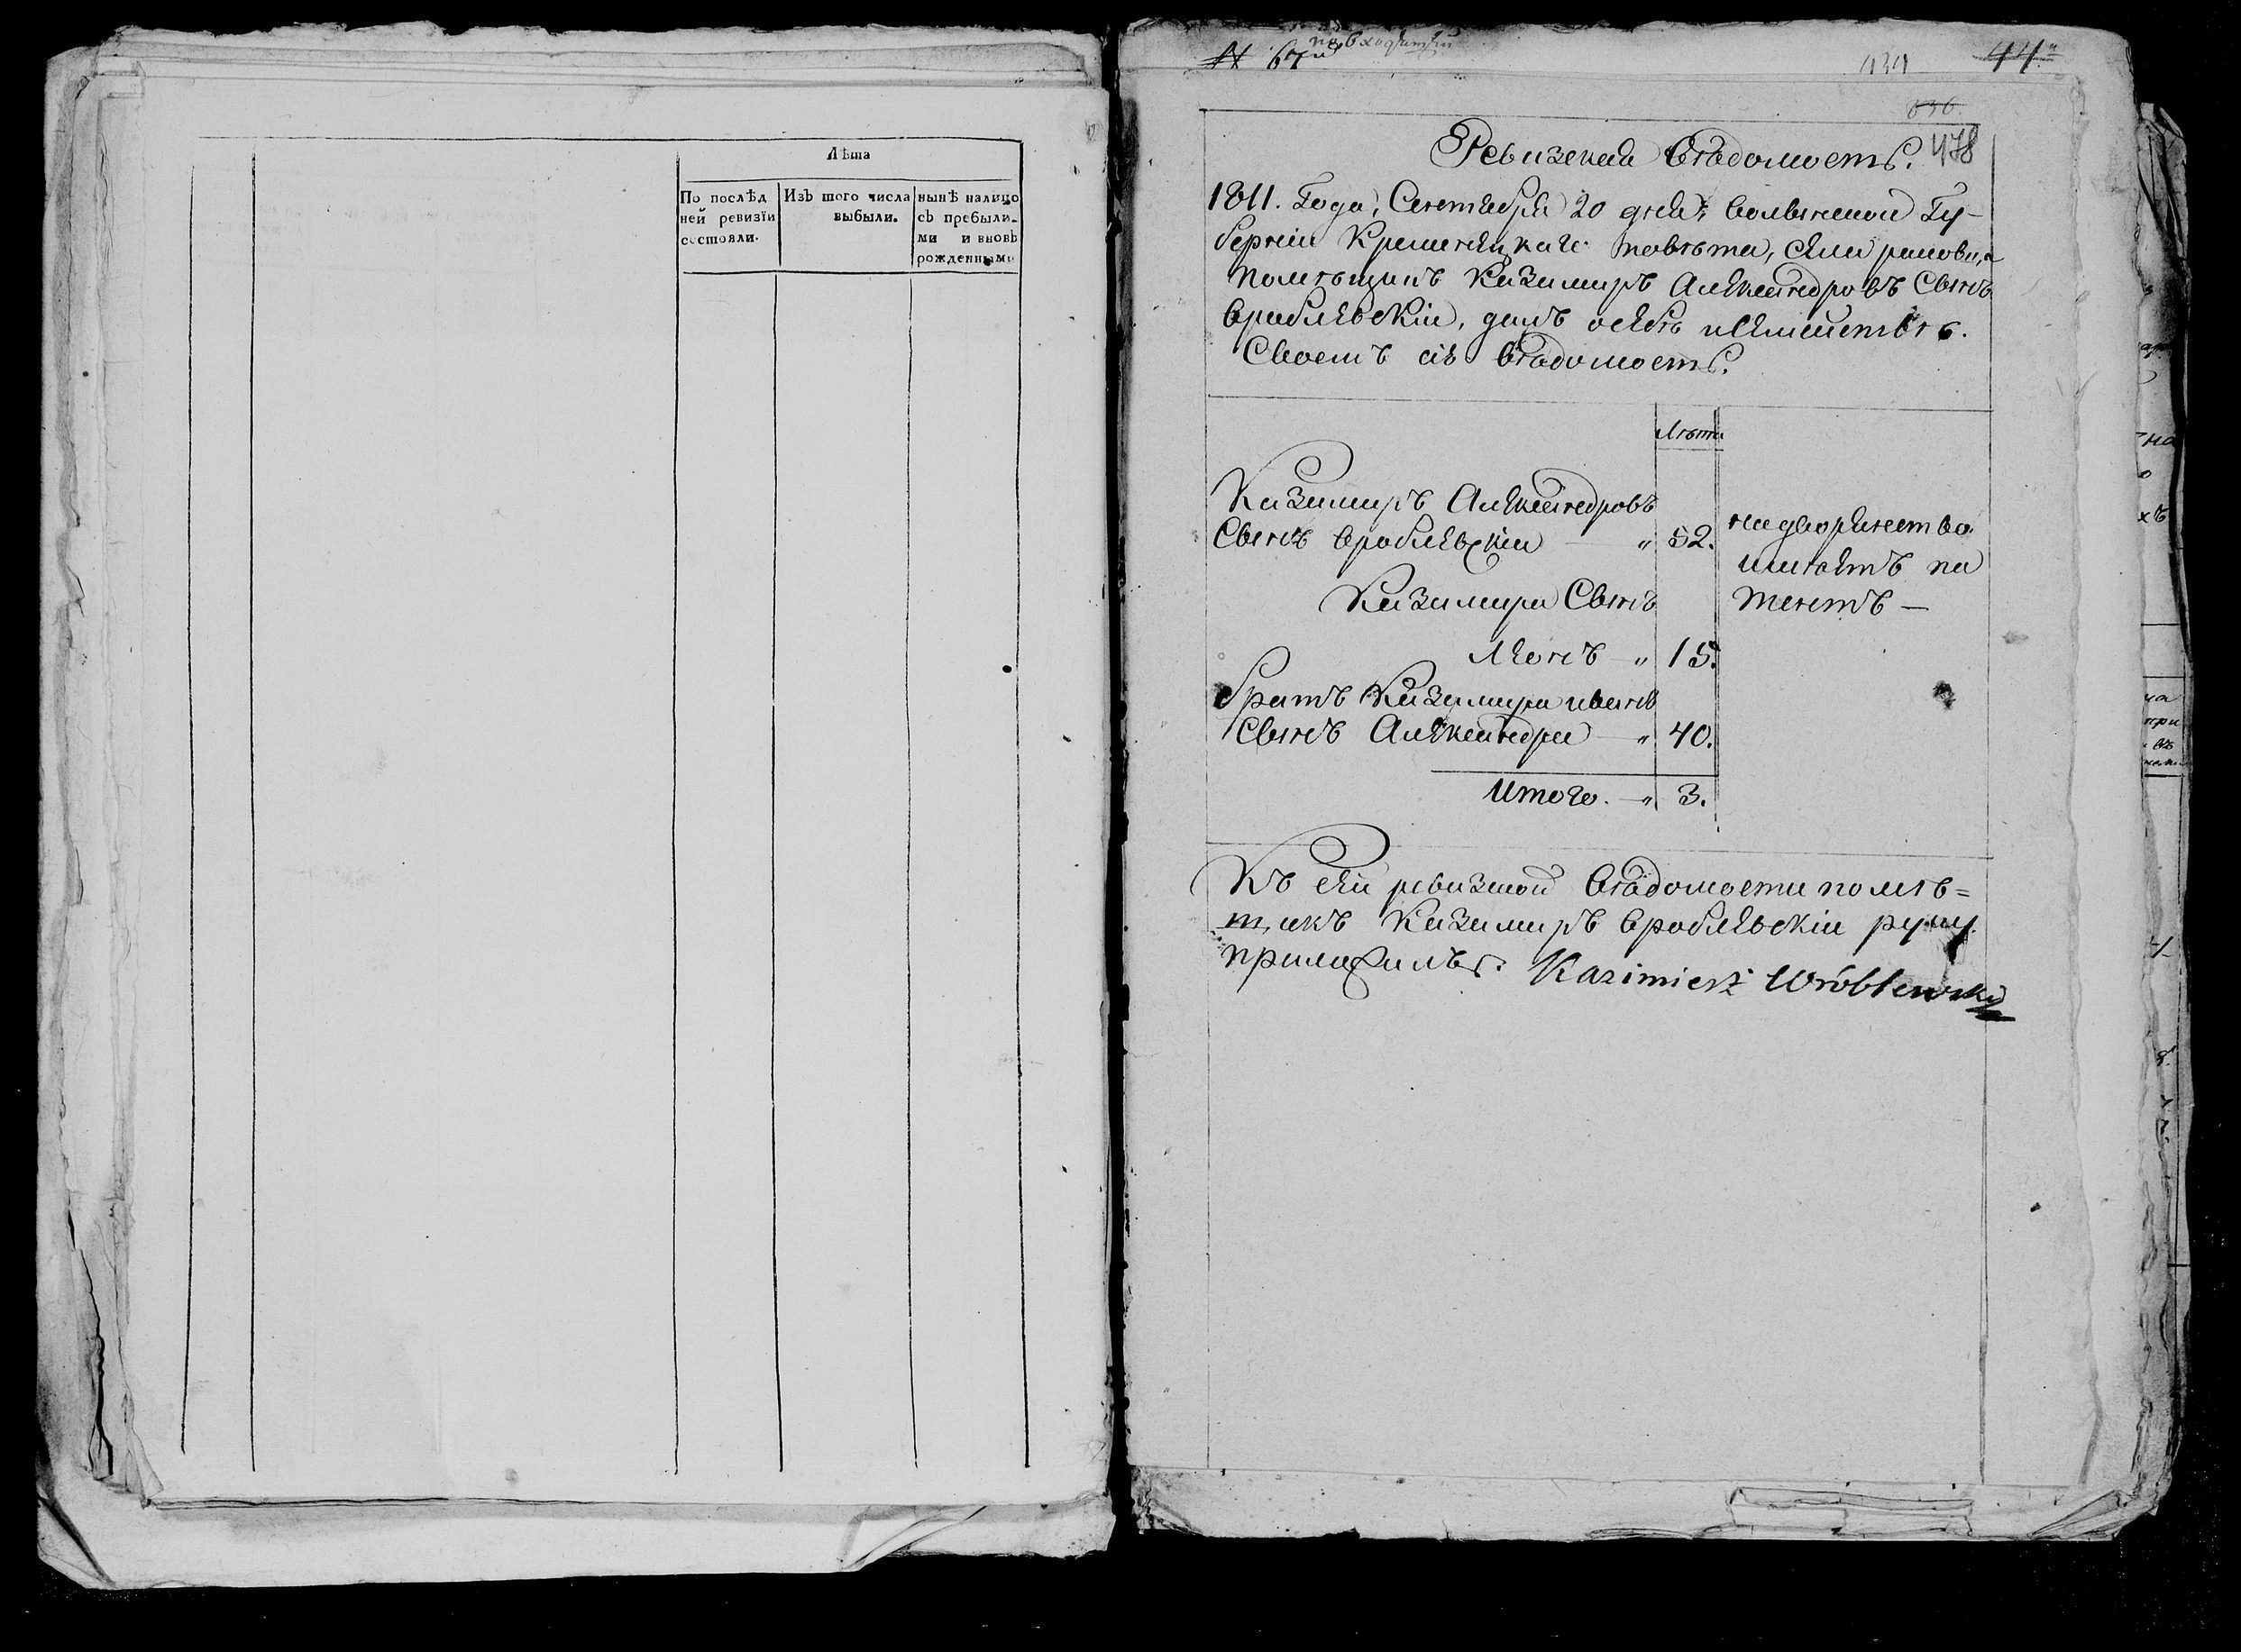 Лѣта
По послѣд
ней ревизїи
состояли.
Изъ того числа
выбыли.
нынѣ налицо
съ пребыли-
ми и вновь
рожденными
№ 67й по входящей
434 44
636
478
Ревизская Вѣдомость.
1811. Года, Сентября 20 дня, Волынской Гу-
берніи Кременецкаго повѣта, села
помѣщикъ Казимиръ Александровъ Сынъ
Вроблевскій, далъ о себѣ и семействѣ
своемъ сію Вѣдомость.
Лѣта
Казимиръ Александровъ
Сынъ Вроблевскій — " 52.
на дворянство
имѣетъ па
тентъ —
Казимира Сынъ
Леонъ — " 15.
братъ Казимира Иванъ
Сынъ Александра — " 40.
Итого. — " 3.
Къ сей ревизской Вѣдомости помѣ=
щикъ Казимиръ Вроблевскій руку
приложилъ. Kazimierz Wróblewski